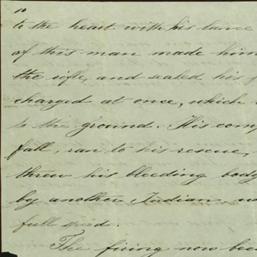 10
to the heart with his lance
of this man made him
the rifle, and sealed his f
charged at once, which
to the ground. His com
fall, ran to his rescue,
threw his bleeding body
by another Indian, w
full speed.
The firing now bec